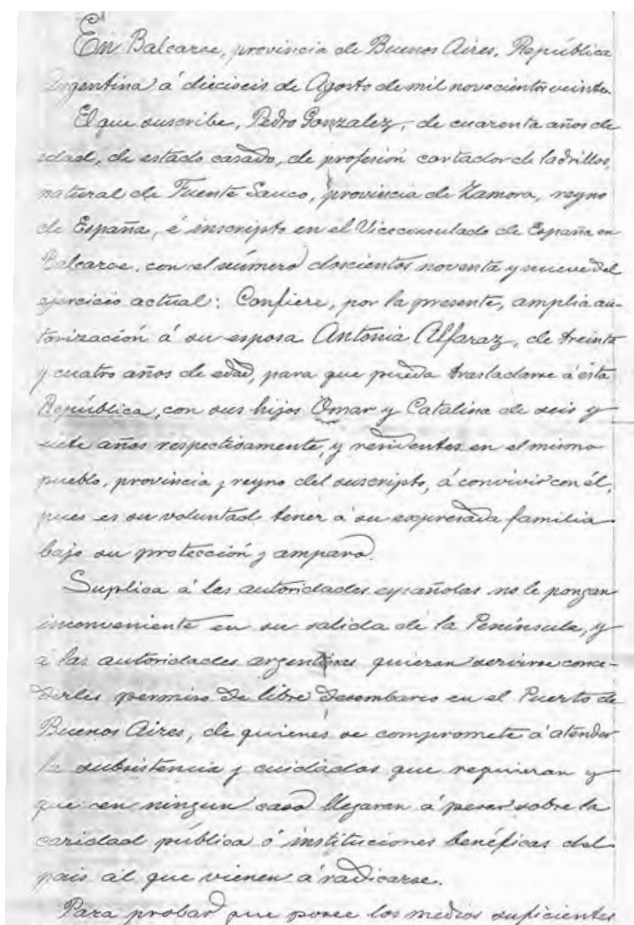 En Balcarce, provincia de Buenos Aires, República
Argentina á dieciseis de Agosto de mil novecientos veinte.
El que suscribe, Pedro Gonzalez, de cuarenta años de
edad, de estado casado, de profesión cortador de ladrillos,
natural de Fuente Sauco, provincia de Zamora, reyno
de España, é inscripto en el Viceconsulado de España en
Balcarce, con el número doscientos noventa y nueve del
ejercicio actual: Confiere, por la presente, amplia au-
torización á su esposa Antonia Alfaraz, de treinta
y cuatro años de edad, para que pueda trasladarse á ésta
República, con sus hijos Omar y Catalina de seis y
siete años respectivamente, y residentes en el mismo
pueblo, provincia y reyno del suscripto, á convivir con él,
pues es su voluntad tener á su expresada familia
bajo su protección y amparo.
Suplica á las autoridades españolas no le pongan
inconveniente en su salida de la Península, y
á las autoridades argentinas quieran servirse conce-
derles permiso de libre desembarco en el Puerto de
Buenos Aires, de quienes se compromete á atender
la subsistencia y cuidados que requieran y
que en ningun caso llegaran á pesar sobre la
caridad pública ó instituciones benéficas del
pais al que vienen á radicarse.
Para probar que posee los medios suficientes